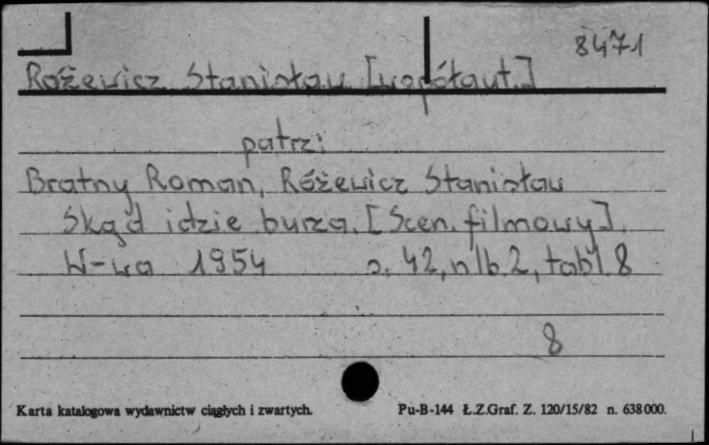 8471
Różewicz Stanisław [współaut.]
patrz:
Bratny Roman, Różewicz Stanisław
Skąd idzie burza. [Scen. filmowy].
W-wa 1954 s. 42, nlb. 2, tabl. 8
8
Karta katalogowa wydawnictw ciągłych i zwartych. Pu-B-144 Ł.Z.Graf. Z. 120/15/82 n. 638000.